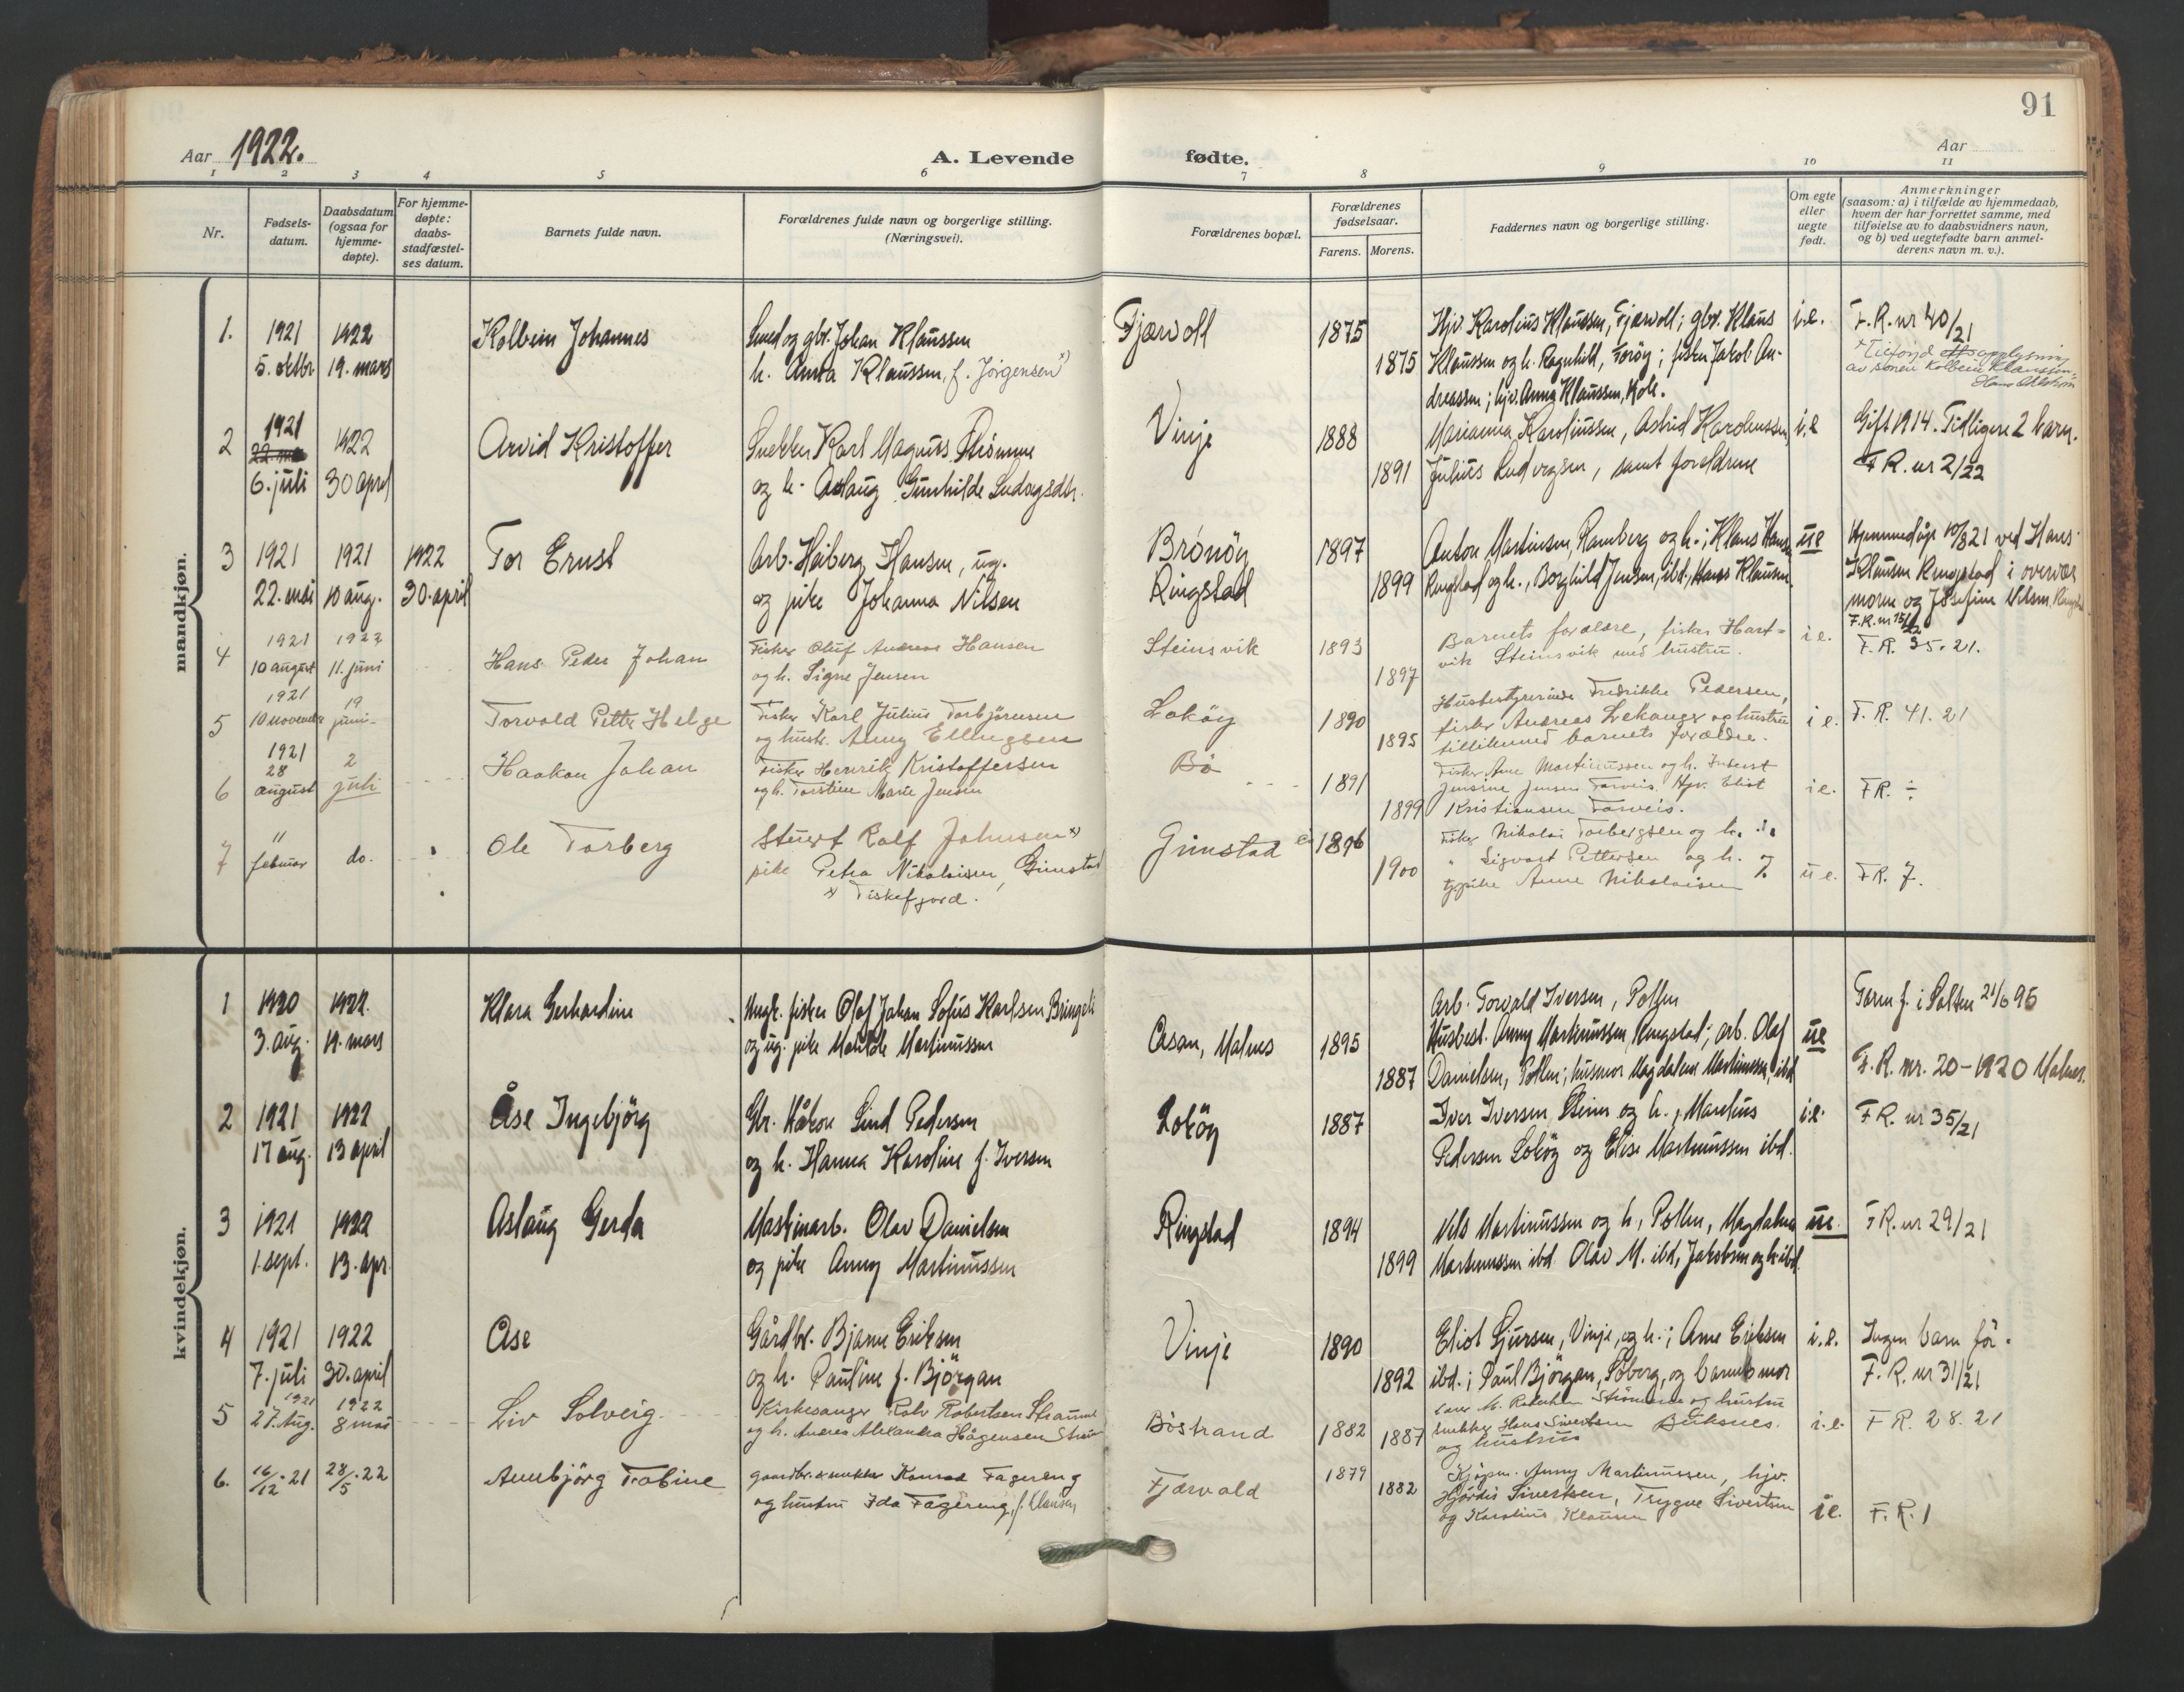 91
Aar 1922.
A. Levende
fødte.
Aar
1 2 3 4 5 6 7 8 9 10 11
Nr.
Fødsels-
datum.
Daabsdatum
(ogsaa for
hjemme-
døpte).
For hjemme-
døpte:
daabs-
stadfæstel-
ses datum.
Barnets fulde navn.
Forældrenes fulde navn og borgerlige stilling.
(Næringsvei).
Forældrenes bopæl.
Forældrenes
fødselsaar.
Farens. Morens.
Faddernes navn og borgerlige stilling.
Om egte
eller
uegte
født.
Anmerkninger
(saasom: a) i tilfælde av hjemmedaab,
hvem der har forrettet samme, med
tilføielse av to daabsvidners navn,
og b) ved uegtefødte barn anmel-
derens navn m. v.).
mandkjøn.
1. 1921 1922 Kolbein Johannes Smed og gbr. Johan Klaussen Fjærvoll 1875 Hjv. Karolius Klaussen, Fjærvoll; gbr. Klaus i.e. F.R. nr 40/21
5. oktbr 19. mars h. Anna Klaussen, f. Jörgensen x) 1875 Klaussen og h. Ragnhild, ; fisker Jakob An-
dreassen; hjv. Anna Klaussen, .
x Tilföyd opplysning
av sönen Kolbein Klaussen.
1921
2 22. 1922 Arvid Kristoffer Snekker Karl Magnus Strömme Vinje 1888 Marianna Karoliussen, Astrid Karoliussen i.e Gift 1914. Tidligere 2 barn.
6. juli 30 april og h. Aslaug Gunhilde Ludvigsdtr. 1891 Julius Ludvigsen, samt foreldrene F.R. nr 2/22
3 1921 1921 1922 Tor Ernst Arb. Heiberg Hansen, ug. Brönöy 1897 Anton Martinsen Ramberg og h.; Klaus Hansen ue Hjemmedöpt 10/8 21 ved Hans
22. mai 10 aug. 30. april og pike Johanna Nilsen Ringstad 1899 Ringstad og h., Borghild Jensen, ibd., Hans Klausen Klausen Ringstad i overvær
moren og Josefine Nilsen,
F.R. nr 15/22
4 1921 1922 Hans Peder Johan Fisker Oluf Andreas Hansen Steinsvik 1893 Barnets forældre, fisker Hart- i e. F.R. 35. 21.
10 august 11. juni og h. Signe Jensen 1897 vik Steinsvik med hustru.
5 1921 19 Torvald Petter Helge Fisker Karl Julius Torbjörnsen Loköy 1890 Husbestyrerinde Fredrikke Pedersen, i e. F.R. 41. 21
10 november juni og hustr. Anny Ellingsen 1895 fisker Andreas Lekanger og hustru
tillikemed barnets forældre.
6 1921 2 Haakon Johan Fisker Henrik Kristoffersen Bö 1891 Fisker Arne Martinussen og h. i e. FR. ÷
28
august juli og h. Torstine Marie Jensen 1899 Jensine Jensen . Hjv. Eliot
Kristiansen .
7 11 do. Ole Torberg Stuert Rolf Johnsen x) Grimstad 1896 Fisker Nikolai Torbergsen og h. u e. FR. 7.
februar pike Petra Nikolaisen, Grimstad 1900 " Sigvart Pettersen og h. og
x) Fiskefjord. pike Anne Nikolaisen
kvindekjøn.
1 1920 1922. Klara Gerhardine Ungk. fisker Olaf Johan Sofus Karlsen Bringeli Åsan, Malnes 1895 Arb. Torvald Iversen, Pollen ue Faren f. i Salten 21/6 95
3. aug. 19. mars og ug. pike Matilde Martinussen 1887 Husbest. Anny Martinussen, Ringstad; arb. Olaf F.R. nr. 20 - 1920 Malnes.
Danielsen, Pollen; husmor Magdalene Martinussen, ibd.
2 1921 1922 Åse Ingebjörg Gbr. Håkon Lind Pedersen Lokøy 1887 Iver Iversen, Steine og h., Marelius i.e. F.R. nr 35/21
17 aug. 13 april og h. Hanna Karoline f. Iversen Pedersen Lokøy og Elise Martinussen ibd.
3 1921 1922 Aslaug Gerda Maskinarb. Olav Danielsen Ringstad 1894 Nels Martinussen og h., Pollen, Magdalene ue. F.R. nr 29/21
1. sept. 13. apr. og pike Anny Martinussen 1899 Martinussen ibd. Olav M. ibd, Jakobsen og h. ibd.
4 1921 1922 Åse Gårdbr. Bjarne Eriksen Vinje 1890 Eliot Sjursen, Vinje, og h.; Arne Eriksen i.e. Ingen barn för.
7. juli 30. april og h. Pauline f. Björgan 1892 ibd.; Paul Björgan, Söberg, og barnets mor F.R. nr 31/21
5 1921 1922 Liv Solveig Kirkesanger Rolv Robertsen Straume Böstrand 1882 M. Strömme og hustru i.e. F.R. 28. 21
27. Aug. 8 mai og h. Andrea Alexandra Hågensen 1887 snekker Hans Sivertsen Buksnes.
og hustru
6. 16/12. 21 28/5. 22 Aunbjörg Tobine gaardbr. & snekker Konrad Fagereng Fjærvold 1879 Kjøpm. Anny Martinussen, hjv. i e. F.R. 1
og hustru Ida Fagereng, f. Klausen 1882 Hjördis Sivertsen, Trygve Sivertsen
og Karolius Klausen